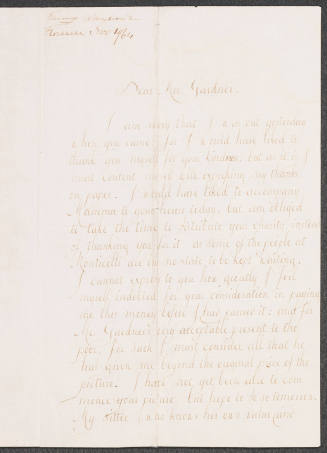 Florence Nov 1864
Dear Mr. Gardner.
I am sorry that I was out yesterday
when you came for I would have liked to
thank you myself for your kindness, but as it is I
must content myself with expressing my thanks
on paper. I would have liked to accompany
Mamma to your house today, but am obliged
to take the time to distribute your charity, instead
of thanking you for it as some of the people at
Monticelli are in no state to be kept waiting.
I cannot express to you how greatly I feel
myself indebted for your consideration in paying
me this money before I had earned it: and for
Mr. Gardner's very acceptable present to the
poor, for such I must consider all that he
has given me beyond the original price of the
picture. I have not yet been able to com
mence your picture but hope to do so tomorrow.
My sitter knows her own value and